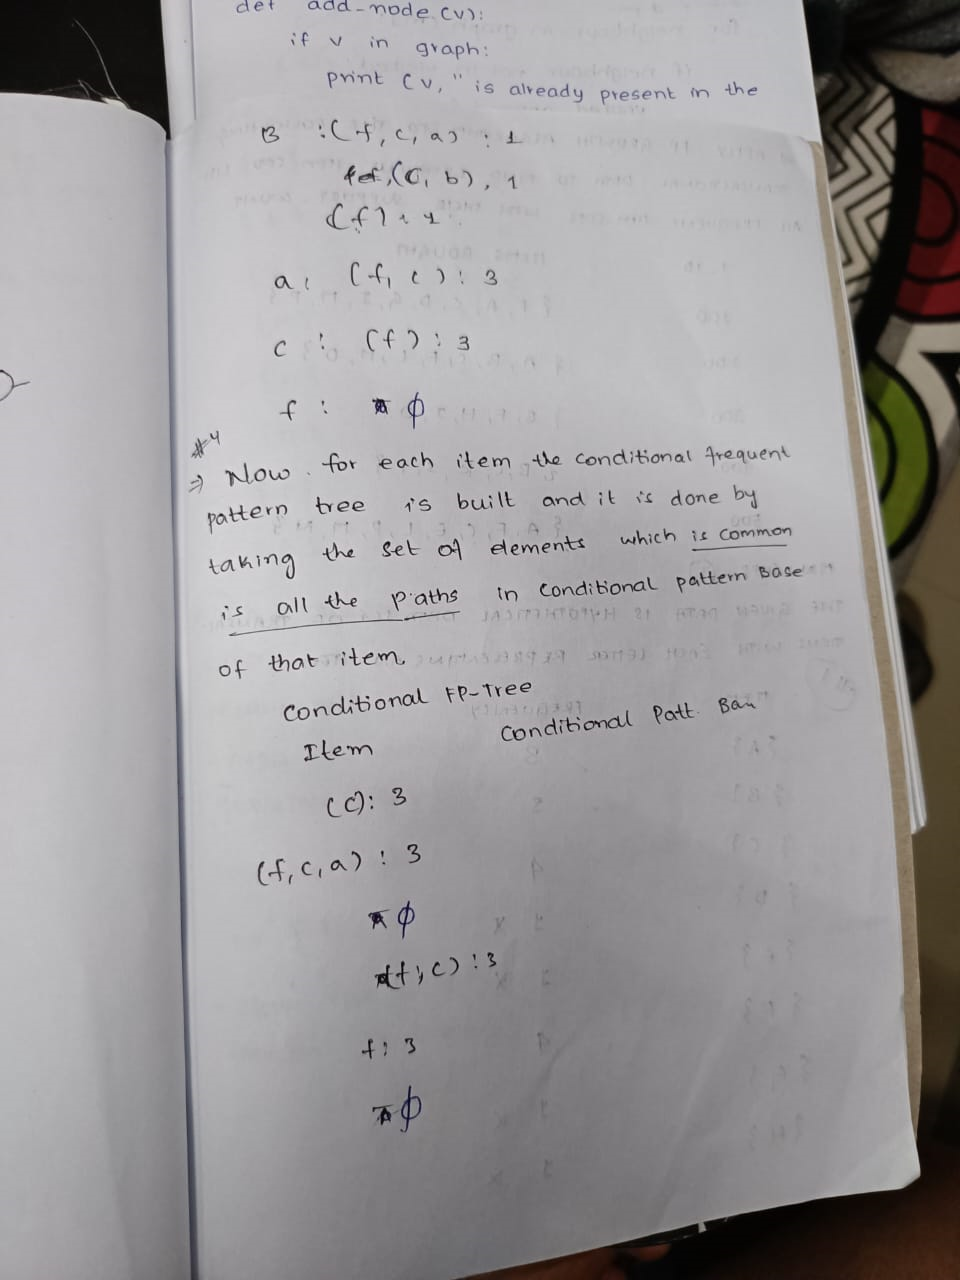 def add-node (v):
if v in graph:
print (v, " is already present in the
B : (f, c, a) : 1
(c, b), 1
(f) : 1
a : (f, c) : 3
c : (f) : 3
f : φ
#4
⇒ Now for each item the conditional frequent
pattern tree is built and it is done by
taking the set of elements which is common
is all the paths in conditional pattern Base
of that item.
Conditional FP-Tree
Item Conditional Patt.
(c): 3
(f, c, a) : 3
φ
f, c) : 3
f : 3
φ